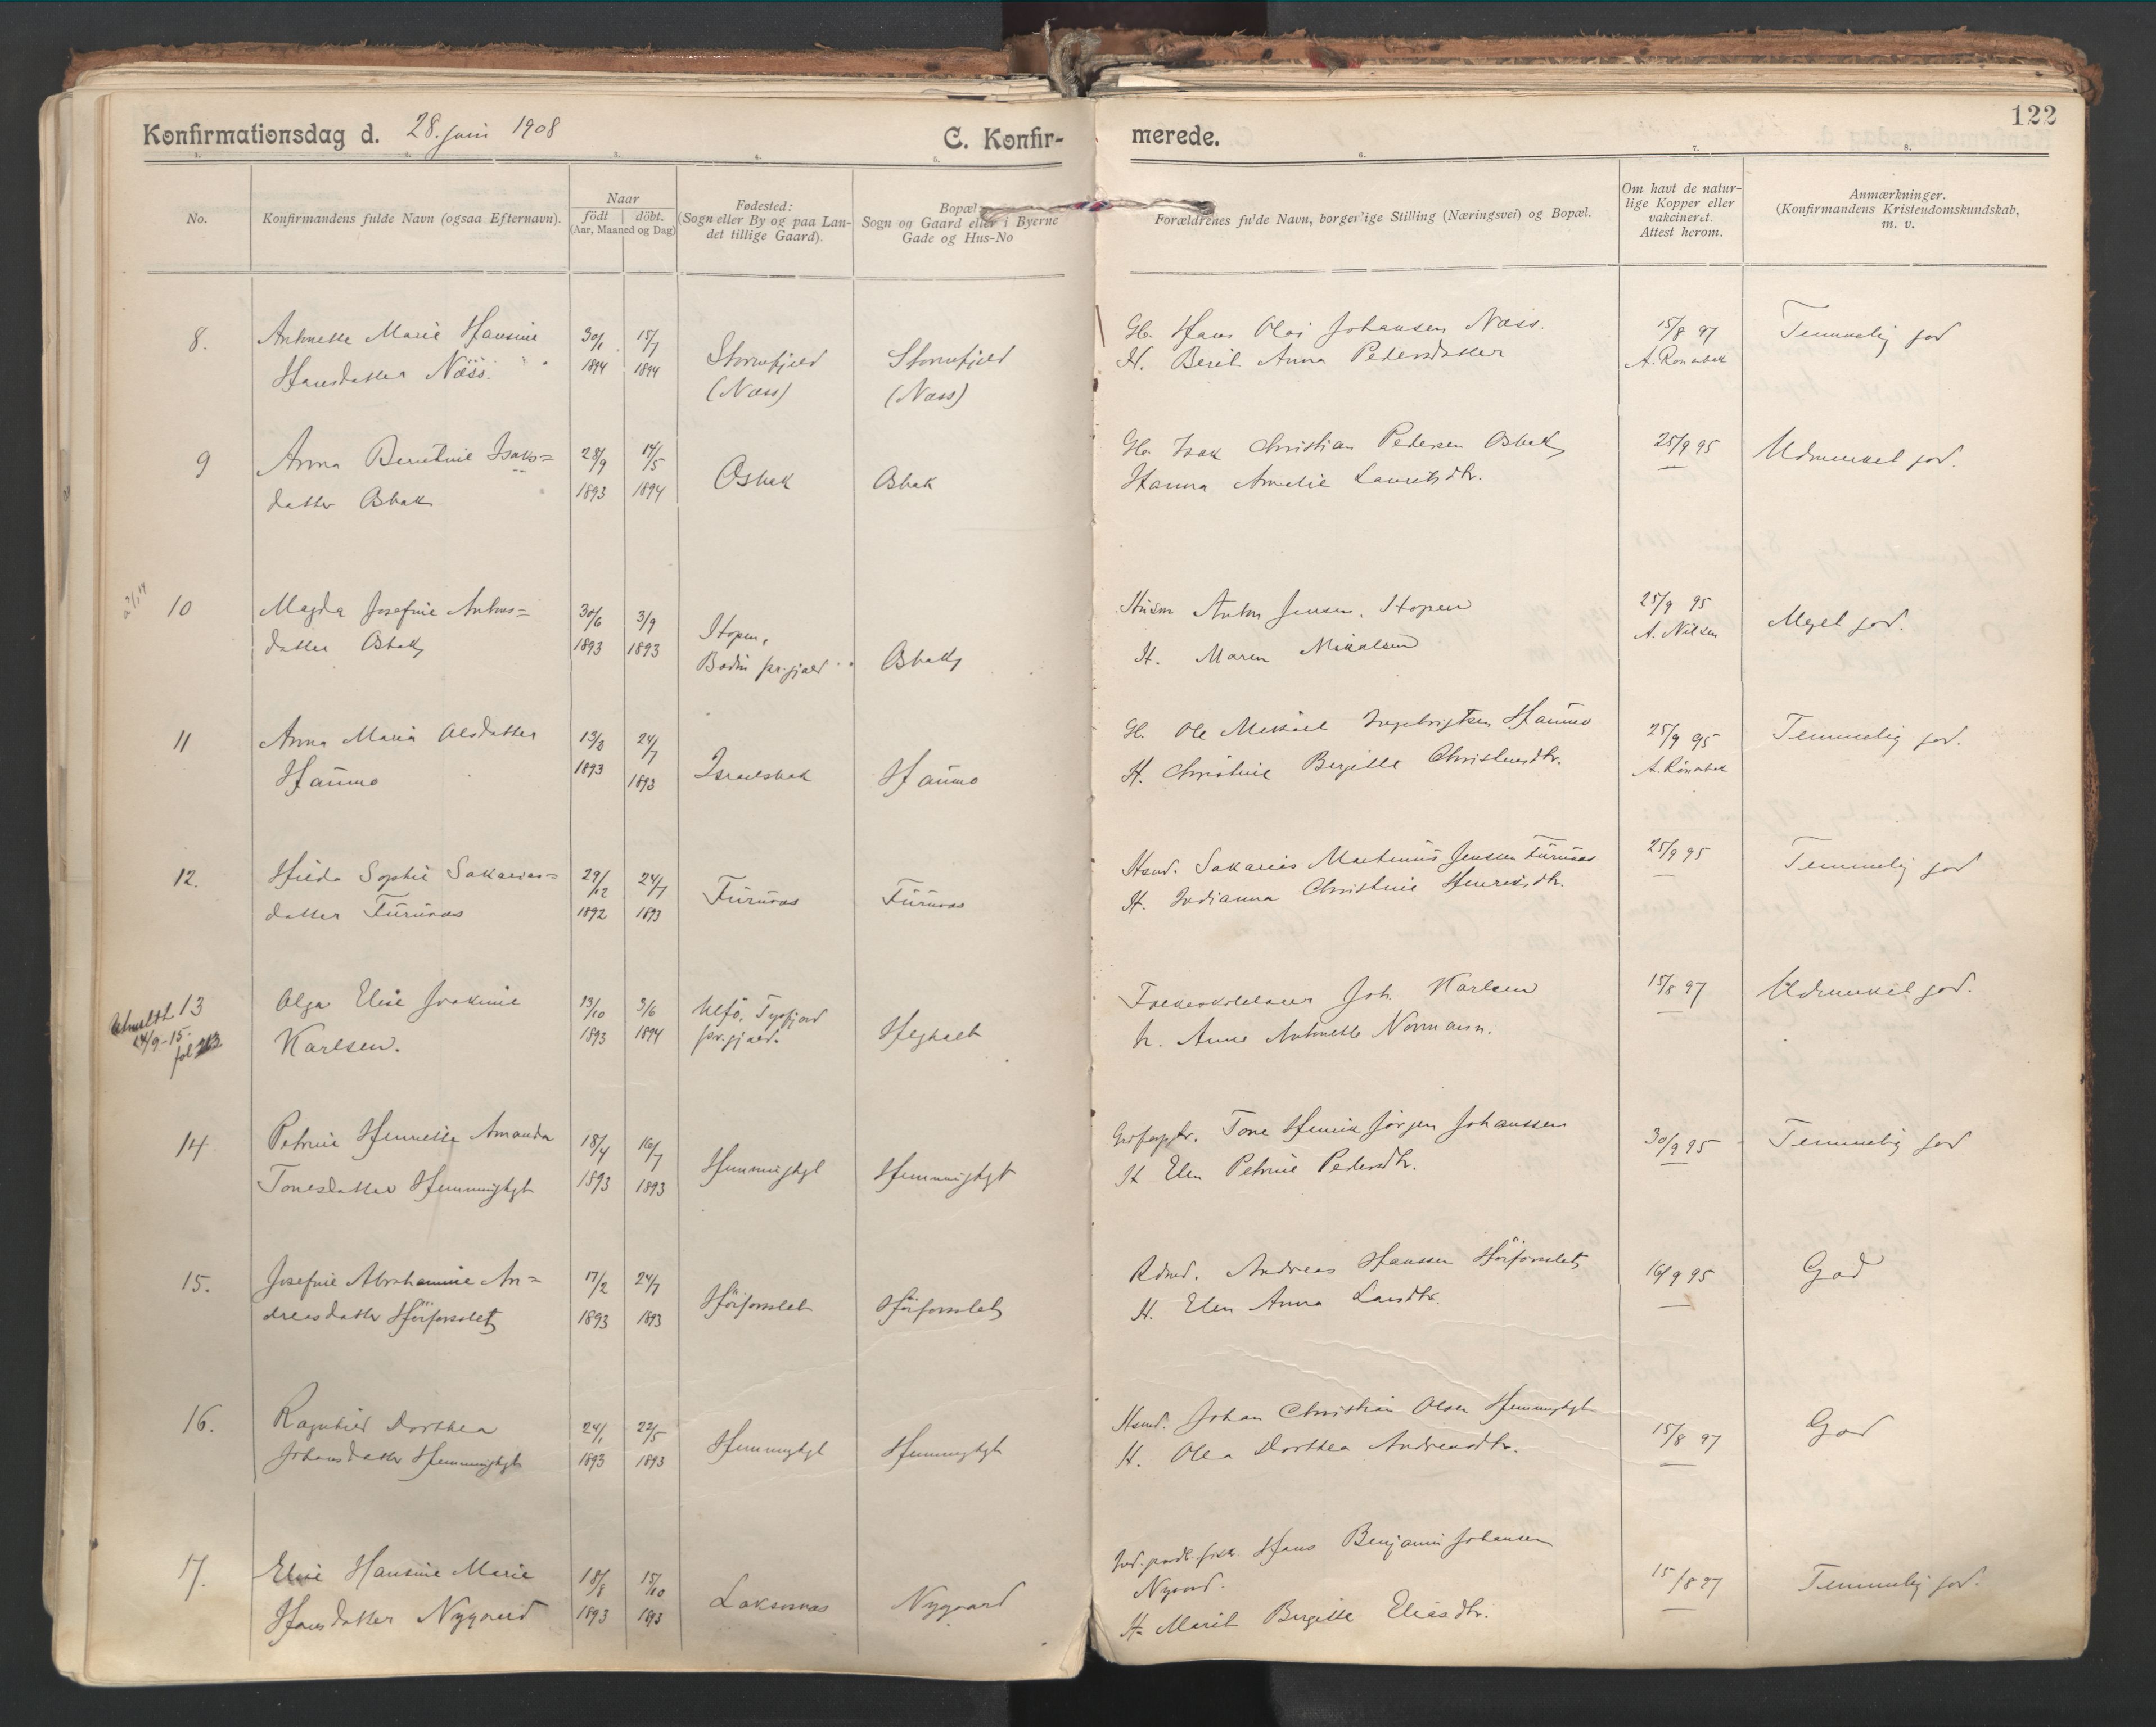 122
Konfirmationsdag d. 28. juni 1908
C. Konfir-
merede.
1. 2. 3. 4. 5. 6. 7. 8.
No.
Konfirmandens fulde Navn (ogsaa Efternavn).
Naar
födt döbt.
(Aar, Maaned og Dag)
Fødested:
(Sogn eller By og paa Lan-
det tillige Gaard).
Bopæl:
Sogn og Gaard eller i Byerne
Gade og Hus-No
Forældrenes fulde Navn, borgerlige Stilling (Næringsvei) og Bopæl.
Om havt de natur-
lige Kopper eller
vakcineret.
Attest herom.
Anmærkninger.
(Konfirmandens Kristendomskundskab,
m. v.
8.
Antonette Marie Hansine
Hansdatter Næss.
30/1 1894
15/7 1894
Stormfjeld
(Næss)
Stormfjeld
(Næss)
Gb. Hans Olai Johansen Næss.
H. Berit Anna Pedersdatter
15/8 97
Temmelig god
9
Anna Beritine Isaks=
datter Osbak
28/9 1893
17/5 1894
Osbak
Osbak
Gb. Isak Christian Pedersen Osbak
Hanna Amalie Lauritsdtr.
25/9 95
Udmerket god.
10
Magda Josefine Antons=
datter Osbak
30/6 1893
3/9 1893
Stopen,
Bodin pr.gjæld
Osbak
Husm Anton Jensen, Stopen
H. Maren Mikalsen
25/9 95
A. Nilsen
Meget god.
11
Anna Maria Olsdatter
Haumo
13/3 1893
24/7 1893
Israelsbak
Haumo
Gb. Ole Mikael Ingebrigtsen Haumo
H. Christine Bergitte Christensdtr.
25/9 95
Temmelig god.
12.
Hilda Sophie Sakarias=
datter Furunes
29/12 1892
24/7 1893
Furunes
Furunes
Hsmd. Sakarias Martinus Jensen Furunes
H. Indianna Christine Henriksdtr.
25/9 95
Temmelig god
13
Utmeldt
14/9-15
fol 213
Olga Elise Joakime
Karlsen.
13/10 1893
3/6 1894
Ulfö, Tysfjord
pr.gjæld.
Heghalt
Folkeskolelærer Joh. Karlsen
h. Anne Antonette Normann.
15/8 97
Udmerket god.
14
Petrine Henriette Amanda
Tonesdatter Hemmingtgt
18/4 1893
16/7 1893
Hemmingtgt
Hemmingtgt
Tone Henrik Jørgen Johanssen
H Elen Petrine Pedersdtr.
30/9 95
Temmelig god
15.
Josefine Abrahamine An=
dreasdatter Höiforsslet
17/2 1893
24/7 1893
Höiforsslet
Höiforsslet
Rdmd. Andreas Hanssen Höiforsslet
H. Elen Anna Larsdtr.
16/9 95
God
16.
Ragnhild Dorthea
Johansdatter Hemmingtgt
24/1 1893
22/5 1893
Hemmingtgt
Hemmingtgt
Hsmd. Johan Christian Olsen Hemmingtgt
H. Olea Dorthea Andreasdtr.
15/8 97
God
17.
Elise Hansine Marie
Hansdatter Nygaard
18/8 1893
15/10 1893
Laksosnes
Nygaard
Hans Benjamin Johansen
Nygaard.
H. Marit Bergitte Eliasdtr.
15/8 97
Temmelig god.